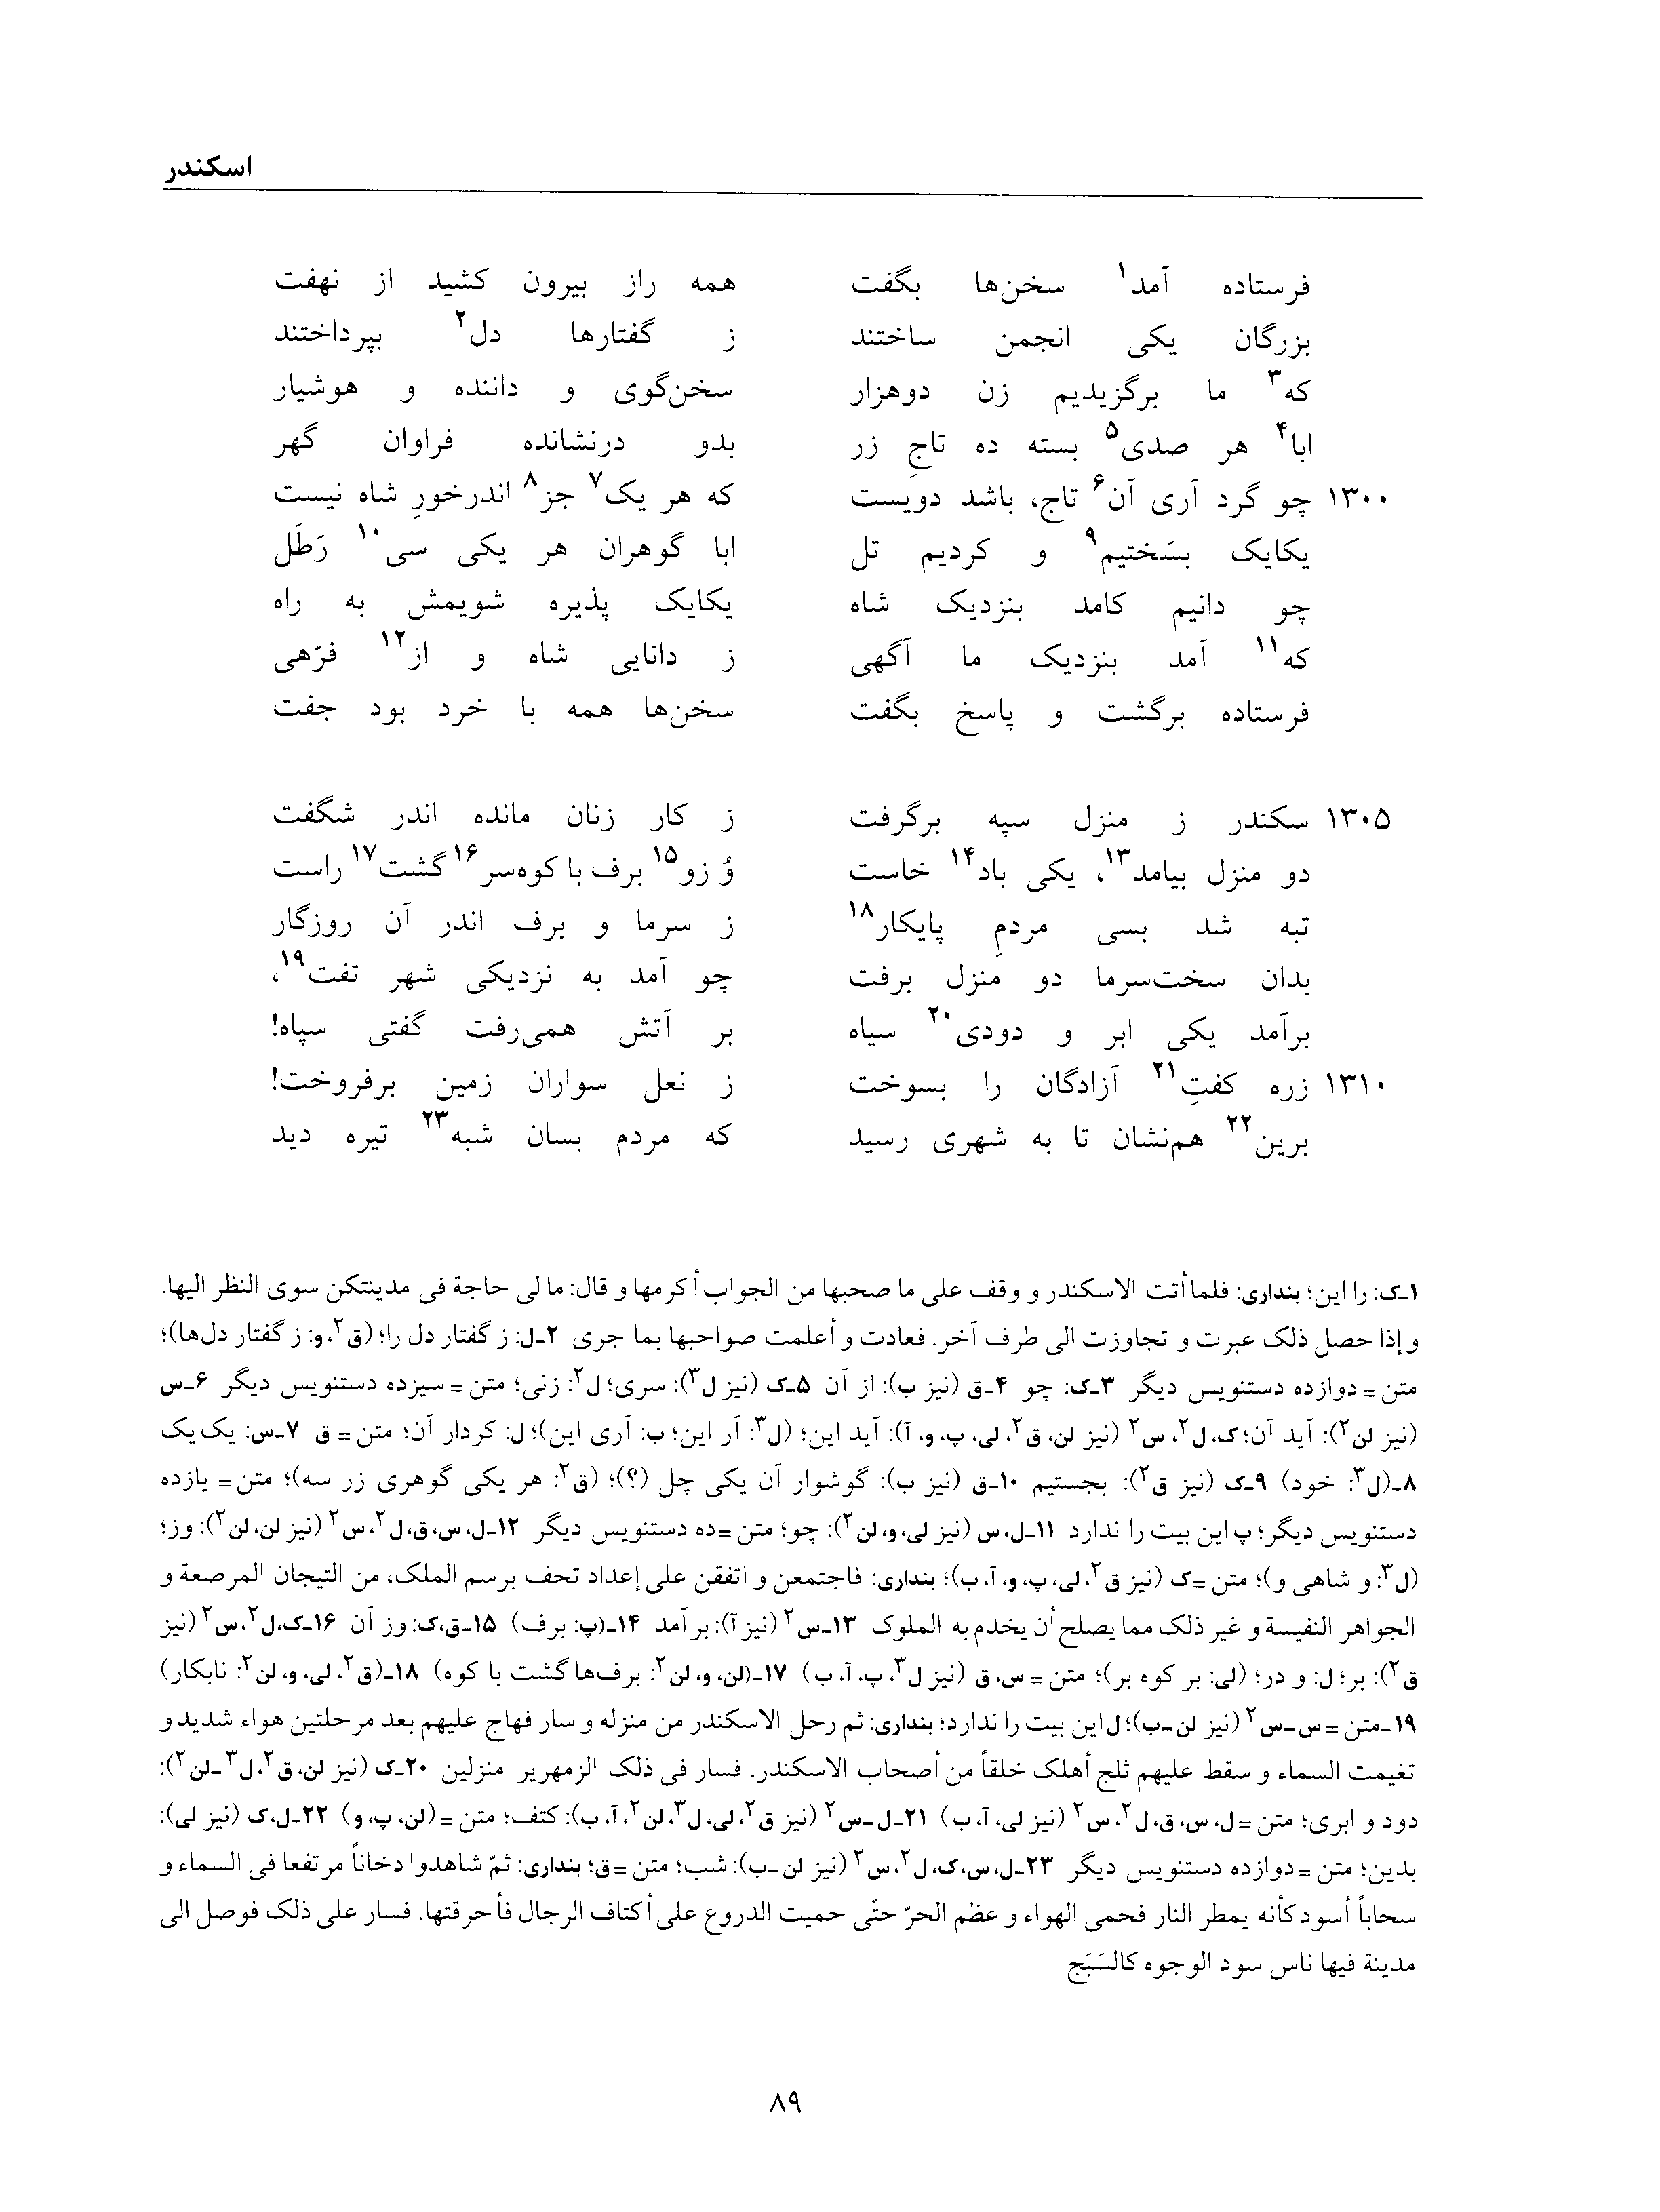 اسکندر
فرستاده آمد۱ سخن‌ها بگفت همه راز بیرون کشید از نهفت
بزرگان یکی انجمن ساختند ز گفتارها دل۲ بپرداختند
که۳ ما برگزیدیم زن دوهزار سخن‌گوی و داننده و هوشیار
ابا۴ هر صدی۵ بسته ده تاجِ زر بدو درنشانده فراوان گهر
۱۳۰۰ چو گرد آری آن۶ تاج، باشد دویست که هر یک۷ جز۸ اندرخورِ شاه نیست
یکایک بسَختیم۹ و کردیم تل ابا گوهران هر یکی سی۱۰ رَطَل
چو دانیم کامد بنزدیک شاه یکایک پذیره شویمش به راه
که۱۱ آمد بنزدیک ما آگهی ز دانایی شاه و از۱۲ فرّهی
فرستاده برگشت و پاسخ بگفت سخن‌ها همه با خرد بود جفت
۱۳۰۵ سکندر ز منزل سپه برگرفت ز کار زنان مانده اندر شگفت
دو منزل بیامد۱۳، یکی باد۱۴ خاست وُ زو۱۵ برف با کوه‌سر۱۶ گشت۱۷ راست
تبه شد بسی مردمِ پایکار۱۸ ز سرما و برف اندر آن روزگار
بدان سخت‌سرما دو منزل برفت چو آمد به نزدیکی شهر تفت۱۹،
برآمد یکی ابر و دودی۲۰ سیاه بر آتش همی‌رفت گفتی سپاه!
۱۳۱۰ زره کفتِ۲۱ آزادگان را بسوخت ز نعل سواران زمین برفروخت!
برین۲۲ هم‌نشان تا به شهری رسید که مردم بسان شبه۲۳ تیره دید
۱ـک: را این؛ بنداری: فلما أتت الاسکندر و وقف علی ما صحبها من الجواب أکرمها و قال: ما لی حاجة فی مدینتکن سوی النظر الیها.
و إذا حصل ذلک عبرت و تجاوزت الی طرف آخر. فعادت و أعلمت صواحبها بما جری ۲ـل: ز گفتار دل را؛ (ق۲، و: ز گفتار دل‌ها)؛
متن = دوازده دستنویس دیگر ۳ـک: چو ۴ـق (نیز ب): از آن ۵ـک (نیز ل۳): سری؛ ل۲: زنی؛ متن = سیزده دستنویس دیگر ۶ـس
(نیز لن۲): آید آن؛ ک، ل۲، س۲ (نیز لن، ق۲، لی، پ، و، آ): آید این؛ (ل۳: آر این؛ ب: آری این)؛ ل: کردار آن؛ متن = ق ۷ـس: یک یک
۸ـ(ل۳: خود) ۹ـک (نیز ق۲): بجستیم ۱۰ـق (نیز ب): گوشوار آن یکی چل (؟)؛ (ق۲: هر یکی گوهری زر سه)؛ متن = یازده
دستنویس دیگر؛ پ این بیت را ندارد ۱۱ـل، س (نیز لی، و، لن۲): چو؛ متن = ده دستنویس دیگر ۱۲ـل، س، ق، ل۲، س۲ (نیز لن، لن۲): وز؛
(ل۳: و شاهی و)؛ متن = ک (نیز ق۲، لی، پ، و، آ، ب)؛ بنداری: فاجتمعن و اتفقن علی إعداد تحف برسم الملک، من التیجان المرصعة و
الجواهر النفیسة و غیر ذلک مما یصلح أن یخدم به الملوک ۱۳ـس۲ (نیز آ): برآمد ۱۴ـ(پ: برف) ۱۵ـق، ک: وز آن ۱۶ـک، ل۲، س۲ (نیز
ق۲): بر؛ ل: و در؛ (لی: بر کوه بر)؛ متن = س، ق (نیز ل۳، پ، آ، ب) ۱۷ـ(لن، و، لن۲: برف‌ها گشت با کوه) ۱۸ـ(ق۲، لی، و، لن۲: نابکار)
۱۹ـمتن = س–س۲ (نیز لن–ب)؛ ل این بیت را ندارد؛ بنداری: ثم رحل الاسکندر من منزله و سار فهاج علیهم بعد مرحلتین هواء شدید و
تغیمت السماء و سقط علیهم ثلج أهلک خلقاً من أصحاب الاسکندر. فسار فی ذلک الزمهریر منزلین ۲۰ـک (نیز لن، ق۲، ل۳–لن۲):
دود و ابری؛ متن = ل، س، ق، ل۲، س۲ (نیز لی، آ، ب) ۲۱ـل–س۲ (نیز ق۲، لی، ل۳، لن۲، آ، ب): کتف؛ متن = (لن، پ، و) ۲۲ـل، ک (نیز لی):
بدین؛ متن = دوازده دستنویس دیگر ۲۳ـل، س، ک، ل۲، س۲ (نیز لن–ب): شب؛ متن = ق؛ بنداری: ثمّ شاهدوا دخاناً مرتفعا فی السماء و
سحاباً أسود کأنه یمطر النار فحمی الهواء و عظم الحرّ حتّی حمیت الدروع علی أکتاف الرجال فأحرقتها. فسار علی ذلک فوصل الی
مدینة فیها ناس سود الوجوه کالسَبَج
۸۹